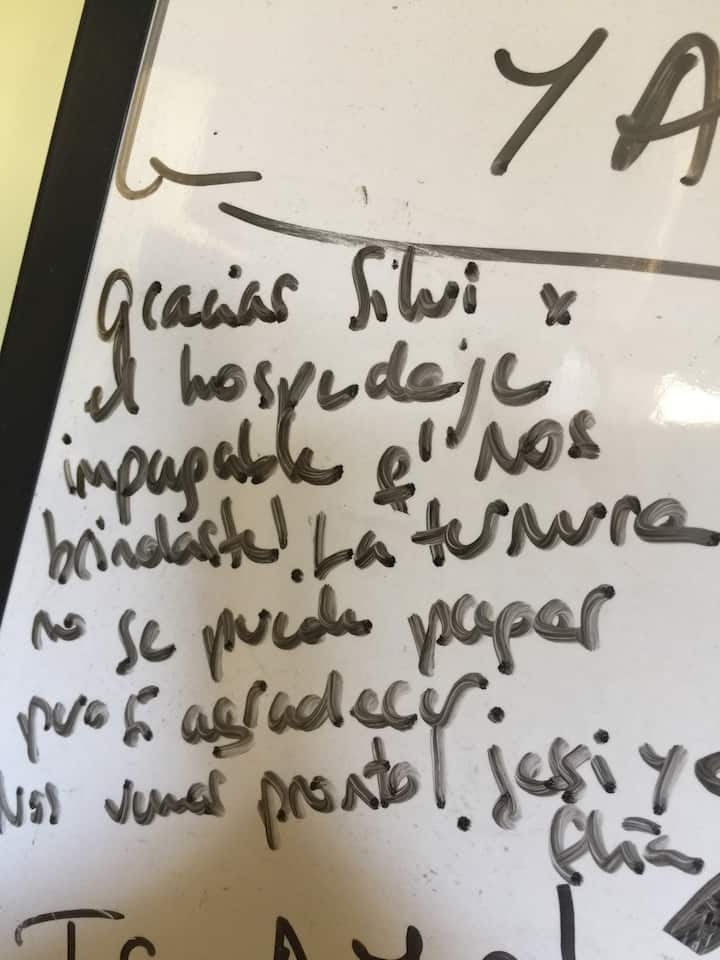 YA
Gracias Silvi x
el hospedaje
impagable q' nos
brindaste! La ternura
no se puede pagar
pero sí agradecer.
Nos vemos pronto! Jesi y